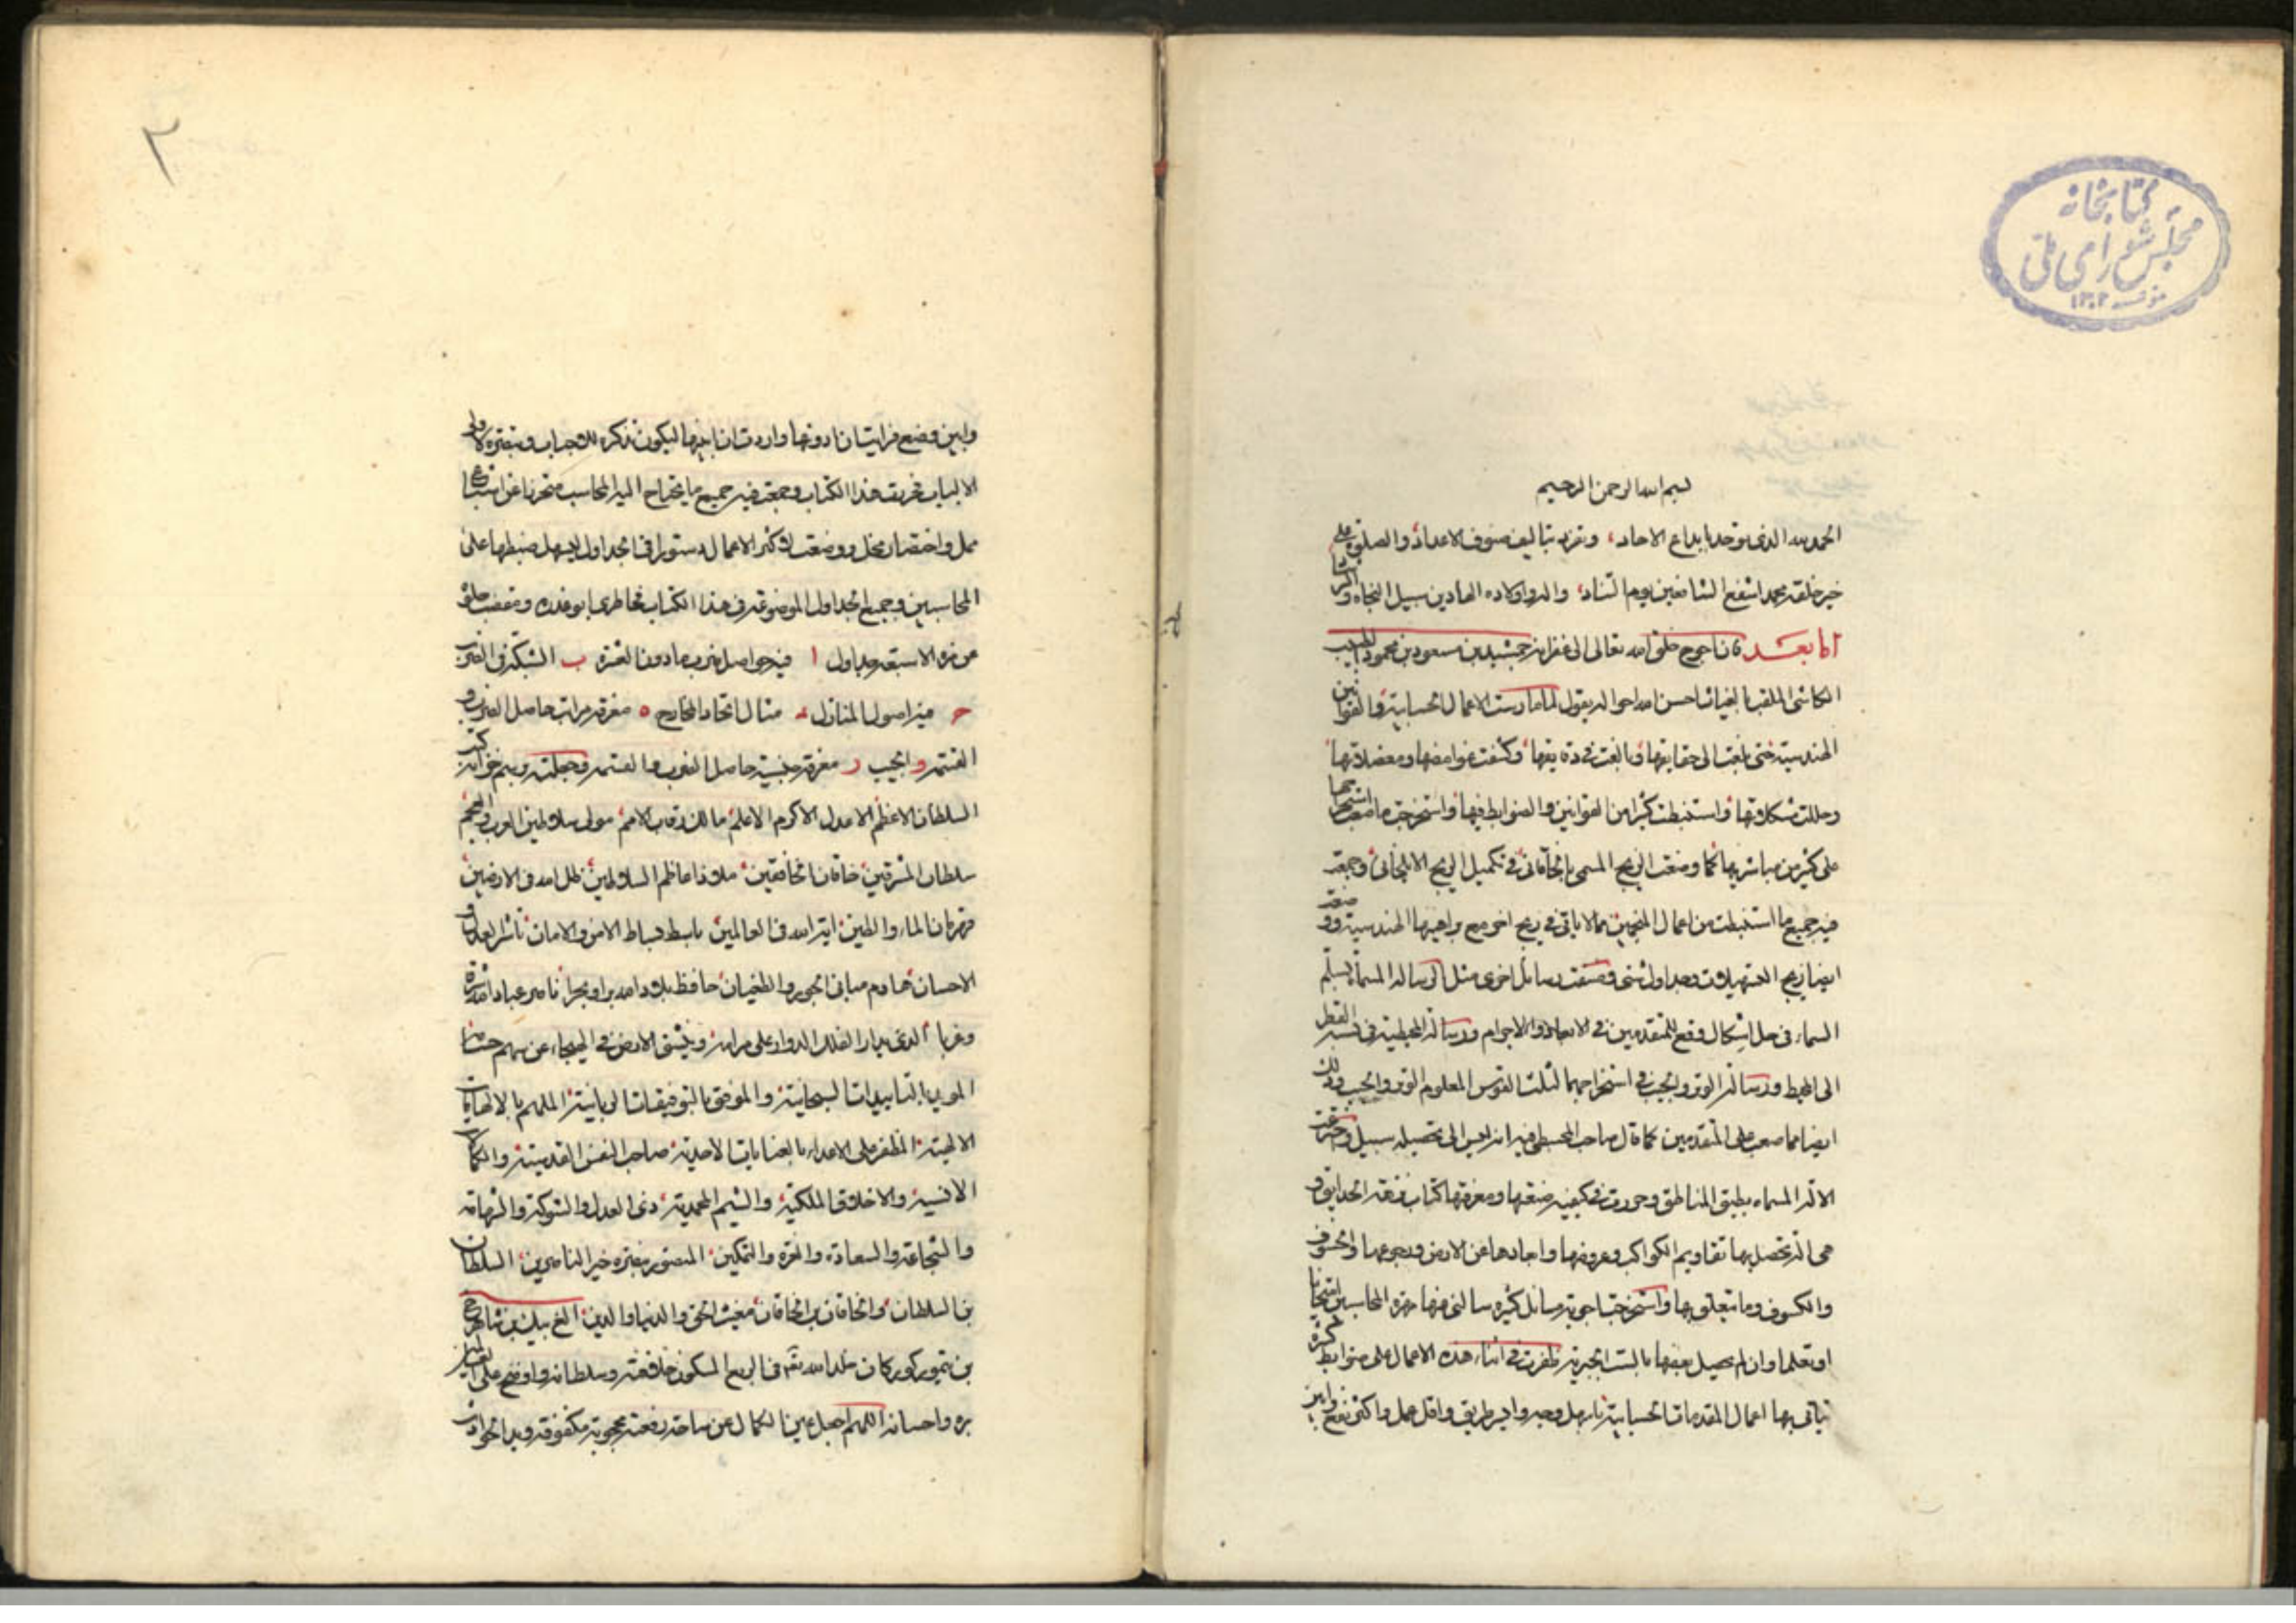 كتابخانه
مجلس شورای ملی
مؤسسه ١٣٠٢
بسم الله الرحمن الرحيم
الحمد لله الذى توحد بابداع الاحاد، وتفرد بتاليف صنوف الاعداد والصلوة على
خير خلقه محمد اشفع الشافعين يوم التناد، واله واولاده الهادين سبيل النجاة و
اما بعد فان احوج خلق الله تعالى الى غفرانه جمشيد بن مسعود بن محمود الطبيب
الكاشى الملقب بغياث احسن الله احواله يقول لما مارست الاعمال الحسابية والقوانين
الهندسية حتى بلغت الى حقايقها وبالغت فى دقايقها وكشفت غوامضها ومعضلاتها
وحللت مشكلاتها واستنبطت كثيرا من القوانين والضوابط فيها واستخرجت ما صعب استخراجها
على كثير من مباشريها كما وضعت الزيج المسمى بالخاقانى فى تكميل الزيج الايلخانى وجمعت
فيه جميع ما استنبطت من اعمال المنجمين مما لا ياتى فى زيج اخر مع براهينها الهندسية ووضعت
ايضا زيج التسهيلات وجداول شتى وصنفت رسائل اخرى مثل الرسالة المسماة بسلم
السماء فى حل اشكال وقع للمتقدمين فى الابعاد والاجرام ورسالة المحيطية فى نسبة القطر
الى المحيط ورسالة الوتر والجيب فى استخراجهما لثلث القوس المعلوم الوتر والجيب وذلك
ايضا مما صعب على المتقدمين كما قال صاحب المجسطى فيه انه ليس الى تحصيله سبيل واخترعت
الالة المسماه بطبق المناطق وحررت فى كيفية صنعتها ومعرفتها كتاب نزهة الحدايق و
هى الة تحصل بها تقاويم الكواكب وعروضها وابعادها عن الارض ورجوعها والخسوف
والكسوف وما يتعلق بها واستخرجت اجوبة مسائل كثيرة سالنى عنها مهرة المحاسبين امتحانا
او تعلما وان لم يحصل بعضها بالست الجبرية ظفرت فى اثناء هذه الاعمال على ضوابط كثيرة
يتأتى بها اعمال المقدمات الحسابية باسهل وجه وايسر طريق واقل عمل واكثر نفع وابين
٢
وابين وضع فرايت ان ادونها واردت ان ابينها ليكون تذكرة للاحباب وتبصرة لاولى
الالباب فحررت هذا الكتاب وجمعت فيه جميع ما يحتاج اليه المحاسب متحرزا عن اشباع
ممل واختصار مخل ووضعت لاكثر الاعمال دستورا فى الجداول ليسهل ضبطها على
المحاسبين وجميع الجداول الموضوعة فى هذا الكتاب خاطرى ابو عذره
من هذه الاسبعة جداول ا فيه حواصل ضرب ما دون العشرة ب الشبكة فى الضرب
ج فيه اصول المنازل د مثال اتحاد المخارج ه معرفة مراتب حاصل الضرب و
القسمة و الجيب ز معرفة جنسية حاصل الضرب والقسمة وجعلته
السلطان الاعظم الاعدل الاكرم الاعلم مالك رقاب الامم مولى سلاطين العرب والعجم
سلطان المشرقين خاقان الخافقين ملاذ اعاظم السلاطين ظل الله فى الارضين
قهرمان الماء والطين اية الله فى العالمين باسط بساط الامن والامان ناشر العدل و
الاحسان هادم مبانى الجور والطغيان حافظ بلاد الله برا وبحرا ناصر عباد الله شرقا
وغربا الذى يدار الفلك الدوار على مرامه وينشق الارض فى الهيجاء عن سهم حسامه
المويد بالتاييدات السبحانية والموفق بالتوفيقات الربانية الملهم بالالهامات
الالهية المظفر على الاعداء بالعنايات الاحدية صاحب النفس القدسية والكمالات
الانسية والاخلاق الملكية والشيم المحمدية ذى العدل والشوكة والشهامة
والشجاعة والسعادة والعزة والتمكين المنصور بنصرة خير الناصرين السلطان
بن السلطان والخاقان بن الخاقان مغيث الحق والدنيا والدين الغ بيك بن شاهرخ
بن تيمور كوركان خلد الله تعالى فى الربع المسكون خلافته وسلطانه واوضح على العالمين
بره واحسانه اللهم اجعل عين الكمال عن ساحة رفعته محجوبة مكفوفة